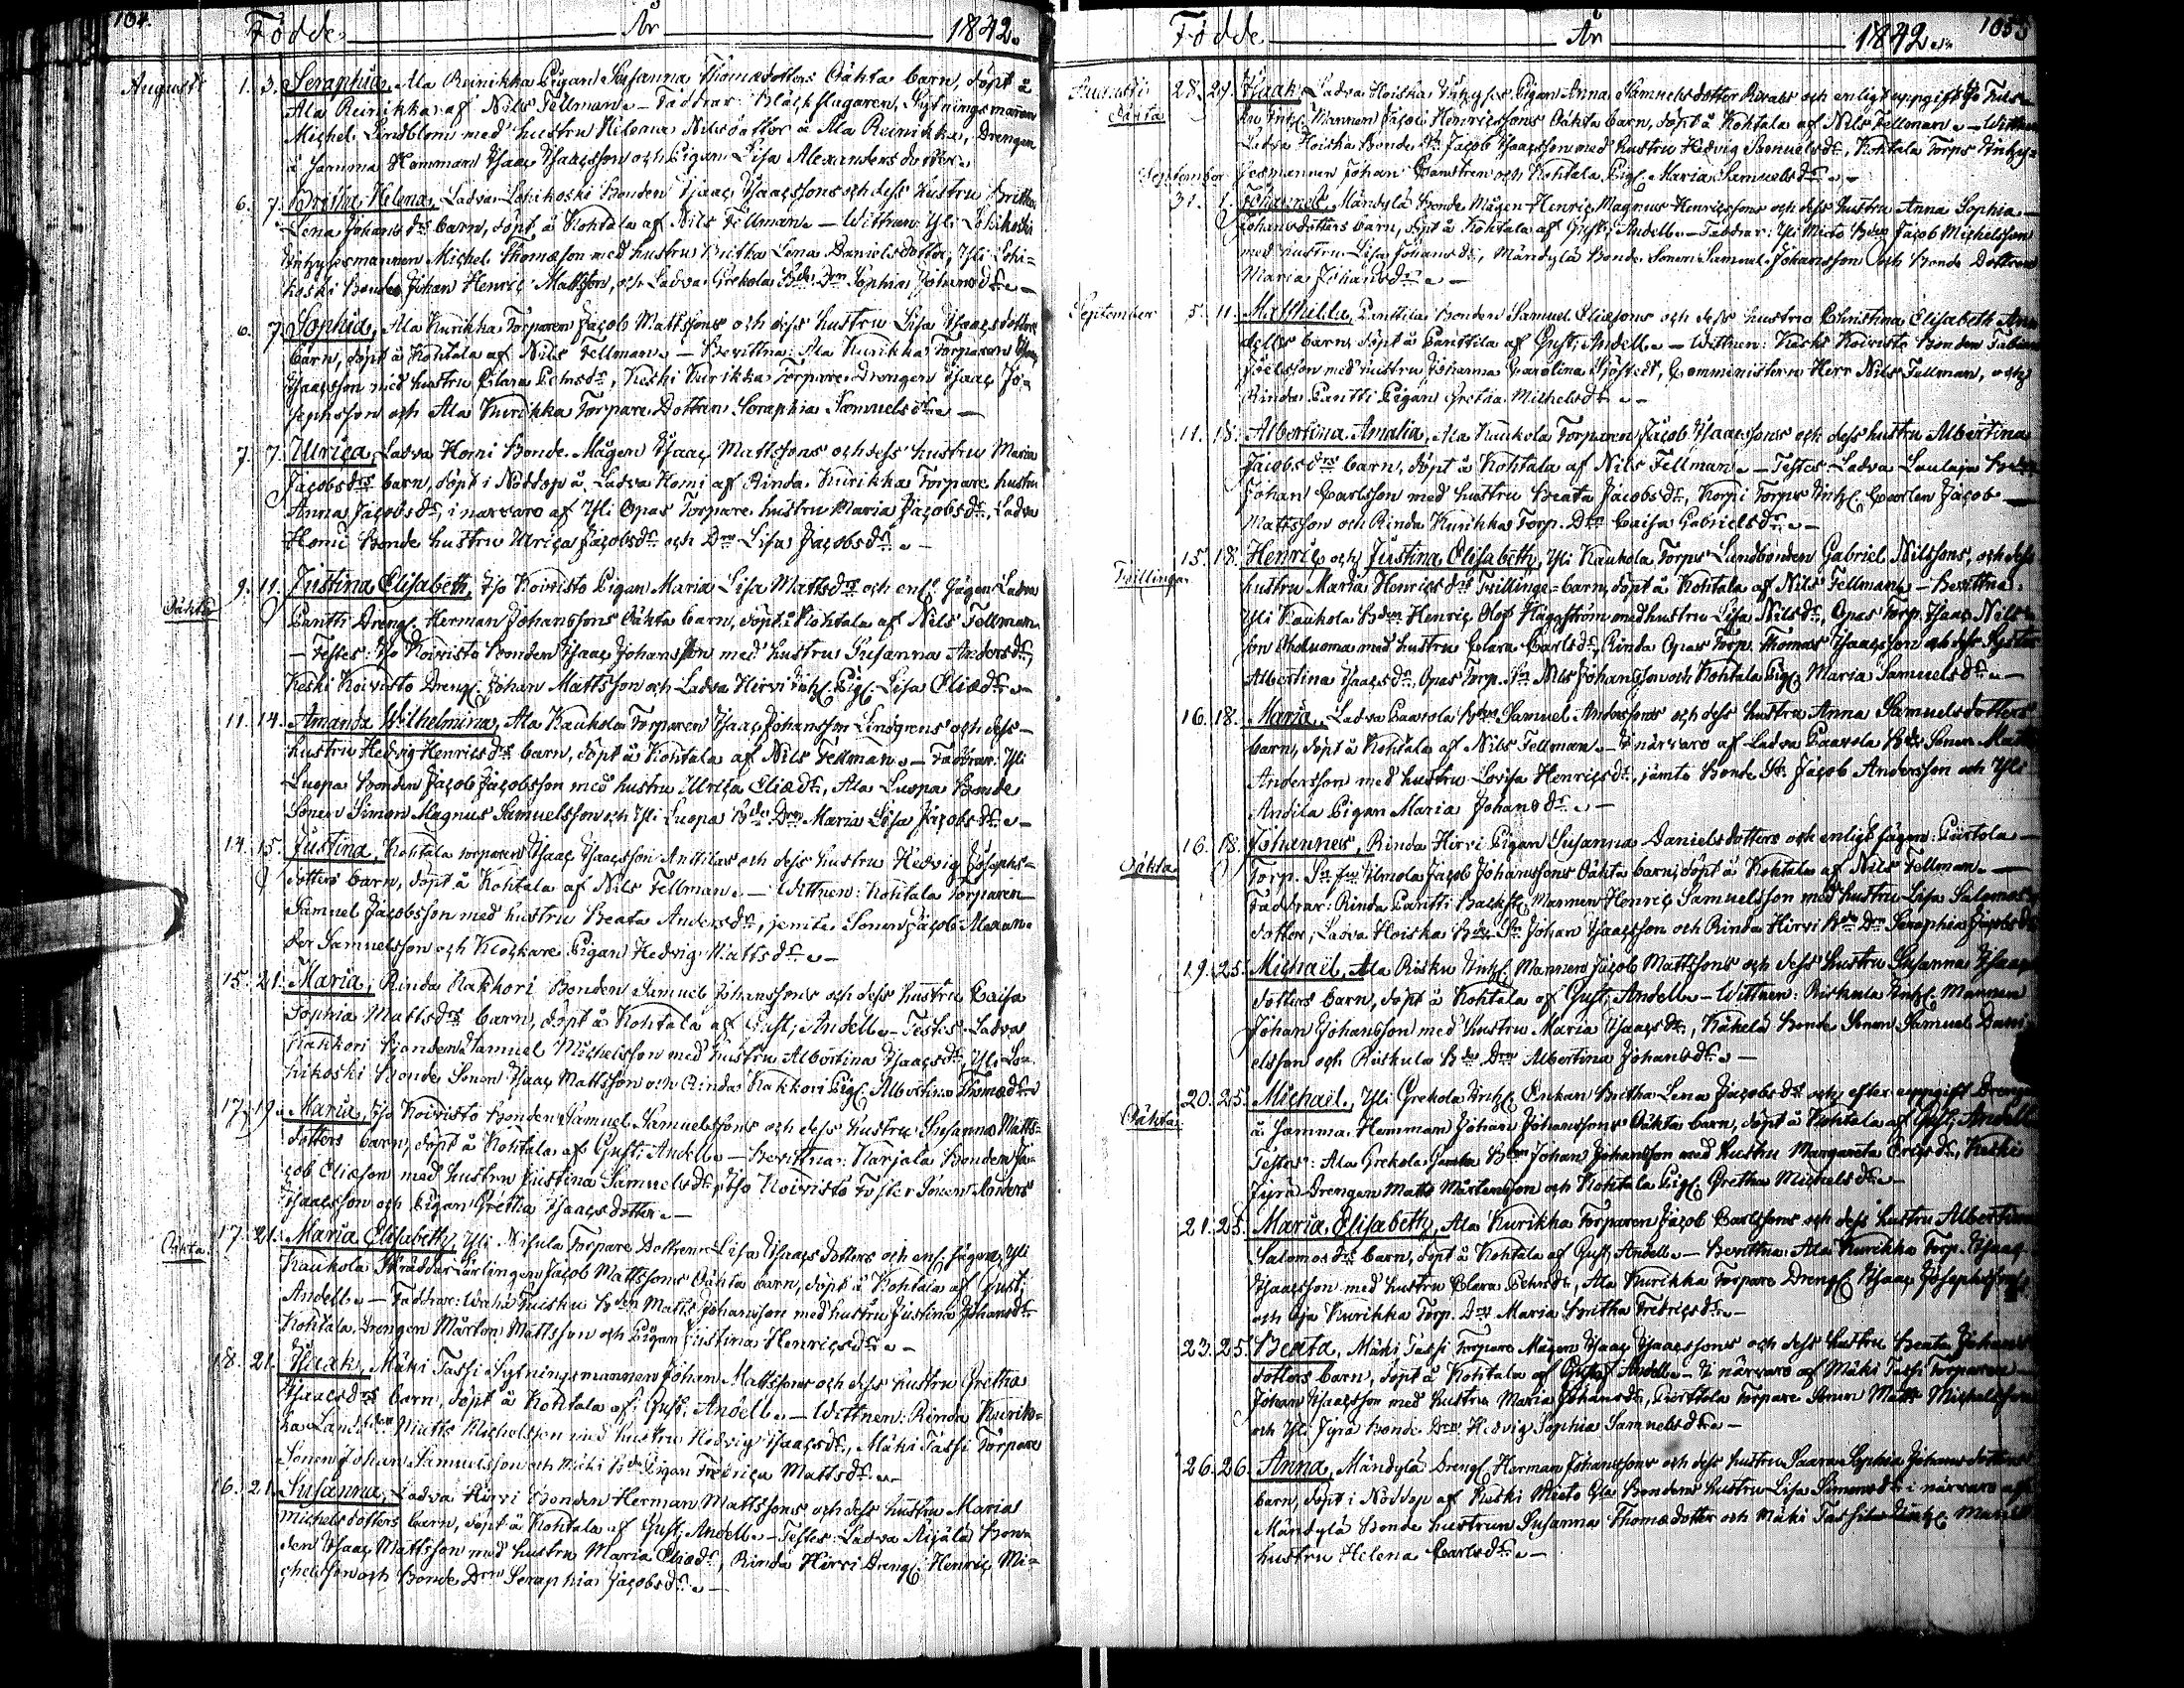 164.
Födde År 1842.
Augusti 1. 3. Seraphia, Ala Reinikka Pigan Susanna Thomædotters Oäkta barn, döpt å
Ala Reinikka af Nils Fellman. – Faddrar: Bläckslagaren, Sytningsmannen
Michel Lindblom med hustru Helena Nilsdotter å Ala Reinikka, Drengen
å samma Hemman Isaac Isaacsson och Pigan Lisa Alexandersdotter. –
6. 7. Britha Helena, Ladva Lohikoski Bonden Isaac Isaacssons och dess hustru Britha
Lena Johans drs barn, döpt å Kohtala af Nils Fellman. – Wittnen: Yli Lohikoski
Inhysesmannen Michel Thomæson med hustru Britha Lena Danielsdotter, Yli Lohi-
koski Bonden Johan Henric Mattsson, och Ladva Grekola Bde Dtrn Sophia Johansdr. –
6. 7. Sophia, Ala Kurikka Torparen Jacob Mattssons och dess hustru Lisa Isaacsdotters
barn, döpt å Kohtala af Nils Fellman. – Bevittna: Ala Kurikka Torparen Isaac
Isaacsson med hustru Clara Petersdr, Keski Kurikka Torpare Drengen Isaac Jo-
sephsson och Ala Kurikka Torpare Dottren Seraphia Samuelsdr. –
7. 7. Ulrica, Ladva Homi Bonde Mågen Isaac Mattssons och dess hustru Maria
Jacobsdrs barn, döpt i Nöddop å Ladva Homi af Rinda Kurikka Torpare hustru
Anna Jacobsdr, i närvaro af Yli Opas Torpare hustru Maria Jacobsdr, Ladva
Homi Bonde hustru Ulrica Jacobsdr och Drn Lisa Jacobsdr. –
Oäkta 9. 11. Justina Elisabeth, Iso Koivisto Pigan Maria Lisa Mattsdrs och enl. sägen Ladva
Pantti Dreng. Herman Johanssons Oäkta barn, döpt å Kohtala af Nils Fellman.
– Testes: Iso Koivisto Bonden Isaac Johansson med hustru Susanna Andersdr,
Keski Koivisto Dreng. Johan Mattsson och Ladva Hirvi Inh. Pig. Lisa Eliædr. –
11. 14. Amanda Wilhelmina, Ala Kaukola Torparen Isaac Johansson Lindgrens och dess
hustru Hedvig Henricsdrs barn, döpt å Kohtala af Nils Fellman. – Faddrar: Yli
Luopa Bonden Jacob Jacobsson med hustru Ulrica Eliædr, Ala Luopa Bonde
Sonen Simon Magnus Samuelsson och Yli Luopa Bde Drn Maria Lisa Jacobsdr. –
14. 15. Justina, Kohtala Torparen Isaac Isaacsson Anttilas och dess hustru Hedvig Josephs-
dotters barn, döpt å Kohtala af Nils Fellman. – Wittnen: Kohtala Torparen
Samuel Jacobsson med hustru Beata Andersdr, jemte Sonen Jacob Alexan-
der Samuelsson och Klockare Pigan Hedvig Mattsdr. –
15. 21. Maria, Rinda Rakkori Bonden Samuel Johanssons och dess hustru Caisa
Sophia Mattsdrs barn, döpt å Kohtala af Gust. Andell. – Testes: Ladva
Rakkori Bonden Samuel Michelsson med hustru Albertina Isaacsdr, Yli Lo-
hikoski Bonde Sonen Isaac Mattsson och Rinda Rakkori Pig. Albertina Thomædr.
17. 19. Maria, Iso Koivisto Bonden Samuel Samuelssons och dess hustru Susanna Matts-
dotters barn, döpt å Kohtala af Gust. Andell. – Bevittna: Karjala Bonden Ja-
cob Eliæson med hustru Justina Samuelsdr, Iso Koivisto Foster Sonen Anders
Isaacsson och Pigan Gretha Isaacsdotter. –
Oäkta 17. 21. Maria Elisabeth, Yli Nisula Torpare Dottren Lisa Isaacsdotters och enl. sägen Yli
Kaukola Skräddar Lärlingen Jacob Mattssons Oäkta barn, döpt å Kohtala af Gust.
Andell. – Faddrar: Waha Tuisku Bden Matts Johansson med hustru Justina Johansdr
Kohtala Drengen Mårten Mattsson och Pigan Justina Henricsdr. –
18. 21. Isaak, Mäki Tassi Sytningsmannen Johan Mattssons och dess hustru Gretha
Isaacsdrs barn, döpt å Kohtala af Gust. Andell. – Wittnen: Rinda Kurik-
ka Landbden Matts Michelsson med hustru Hedvig Isaacsdr, Mäki Tassi Torpare
Sonen Johan Samuelsson och Mäki Bde Pigan Fredrica Mattsdr. –
16. 21. Susanna, Ladva Hirvi Bonden Herman Mattssons och dess hustru Maria
Michelsdotters barn, döpt å Kohtala af Gust. Andell. – Testes: Ladva Reijälä Bon-
den Isaac Mattsson med hustru Maria Eliædr, Rinda Hirvi Dreng. Henric Mi-
chelsson och Bonde Drn Seraphia Jacobsdr. –
165
Födde År 1842.
Augusti Oäkta 28. 29. Isaak, Ladva Hoiska Inhyses Pigan Anna Samuelsdotter och enligt uppgift
Inh. Mannen Jacob Henricssons Oäkta barn, döpt å Kohtala af Nils Fellman. – Wittnen
Ladva Hoiska Bonde Sn Jacob Isaacsson med hustru Hedvig Samuelsdr, Kohtala Torps Inhy-
sesmannen Johan och Kohtala Pig. Maria Samuelsdr. –
September 31. 1. Johannes, Mändylä Bonde Mågen Henric Magnus Henricssons och dess hustru Anna Sophia
Johansdotters barn, döpt å Kohtala af Gust. Andell. – Faddrar: Yli Mieto Bden Jacob Michelsson
med hustru Lisa Johansdr, Mändylä Bonde Sonen Samuel Johansson och Bonde Dottren
Maria Johansdr. –
September 5. 11. Mathilda, Panttila Bonden Samuel Eliæsons och dess hustru Christina Elisabeth An-
dells barn, döpt å Panttila af Gust. Andell. – Wittnen: Keski Koivisto Bonden Fabian
Joelsson med hustru Johanna Carolina Sjöstedt, Comministern Herr Nils Fellman, och
Rinda Pantti Pigan Gretha Michelsdr. –
11. 18. Albertina Amalia, Ala Kaukola Torparen Jacob Isaacssons och dess hustru Albertina
Jacobsdrs barn, döpt å Kohtala af Nils Fellman. – Testes: Ladva Laulaja Bonden
Johan Carlsson med hustru Beata Jacobsdr, Korpi Torps Inh. Carlen Jacob
Mattsson och Rinda Kurikka Torp. Drn Caisa Gabrielsdr. –
Tvillingar 15. 18. Henric och Justina Elisabeth, Yli Kaukola Torps Landbonden Gabriel Nilssons, och dess
hustru Maria Henricsdrs Tvillinge-barn, döpt å Kohtala af Nils Fellman. – Bevittna:
Yli Kaukola Bden Henric Olof Häggström med hustru Lisa Nilsdr, Opas Torp. Isaac Nils-
son med hustru Clara Carlsdr, Rinda Opas Torp. Thomas Isaacsson och dess Syster
Albertina Isaacsdr, Opas Torp. Sn Nils Johansson och Kohtala Pig. Maria Samuelsdr. –
16. 18. Maria, Ladva Paavola Bden Samuel Anderssons och dess hustru Anna Samuelsdotters
barn, döpt å Kohtala af Nils Fellman. – I närvaro af Ladva Paavola Bde Sonen
Andersson med hustru Lovisa Henricsdr, jämte Bonde Sn. Jacob Andersson och Yli
Andila Pigan Maria Johansdr. –
Oäkta 16. 18. Johannes, Rinda Hirvi Pigan Susanna Danielsdotters och enligt sägen:
Torp. Sn Jacob Johanssons Oäkta barn, döpt å Kohtala af Nils Fellman. –
Faddrar: Rinda Pantti Backst. Mannen Henric Samuelsson med hustru Lisa Salomons
dotter, Ladva Hoiska Bde Sn Johan Isaacsson och Rinda Hirvi Bde Drn Seraphia Jacobsdr
19. 25. Michaël, Ala Risku Inh. Mannen Jacob Mattssons och dess hustru Susanna Isaacs
dotters barn, döpt å Kohtala af Gust. Andell. – Wittnen: Riskula Inh. Mannen
Johan Johansson med hustru Maria Isaacsdr, Käkelä Bonde Sonen Samuel Dani-
elsson och Riskula Bde Drn Albertina Johansdr. –
Oäkta 20. 25. Michaël, Yli Grekola Inh. Enkan Britha Lena Jacobsdrs och efter uppgift Drengen
å samma Hemman Johan Johanssons Oäkta barn, döpt å Kohtala af Gust. Andell
Testes: Ala Grekola Bden Johan Johansson med hustru Margareta Ericsdr, Keski
Jyrä Drengen Matts Mårtensson och Kohtala Pig. Gretha Michelsdr. –
21. 25. Maria Elisabeth, Ala Kurikka Torparen Jacob Carlssons och dess hustru Albertina
Salomosdrs barn, döpt å Kohtala af Gust. Andell. – Bevittna: Ala Kurikka Torp. Isaac
Isaacsson med hustru Clara Petersdr, Ala Kurikka Torpare Dreng. Isaac Josephsson
och Kurikka Torp. Drn Maria Britha Fredricsdr. –
23. 25. Beata, Mäki Tassi Torpare Mågen Isaac Isaacssons och dess hustru Beata Johans
dotters barn, döpt å Kohtala af Gustaf Andell. – I närvaro af Mäki Tassi Torparen
Johan Isaacsson med hustru Maria Johansdr, Torpare Sonen Matts Michelsson
och Yli Jyrä Bonde Drn Hedvig Sophia Samuelsdr. –
26. 26. Anna, Mändylä Dreng. Herman Johanssons och dess hustru Saara Sophia Johansdotters
barn, döpt i Nöddop af Keski Mieto Bondens hustru Lisa Simonsdr i närvaro af
Mändylä Bonde hustrun Susanna Thomædotter och Mäki Tassi Inh. Mans
hustru Helena Carlsdr. –